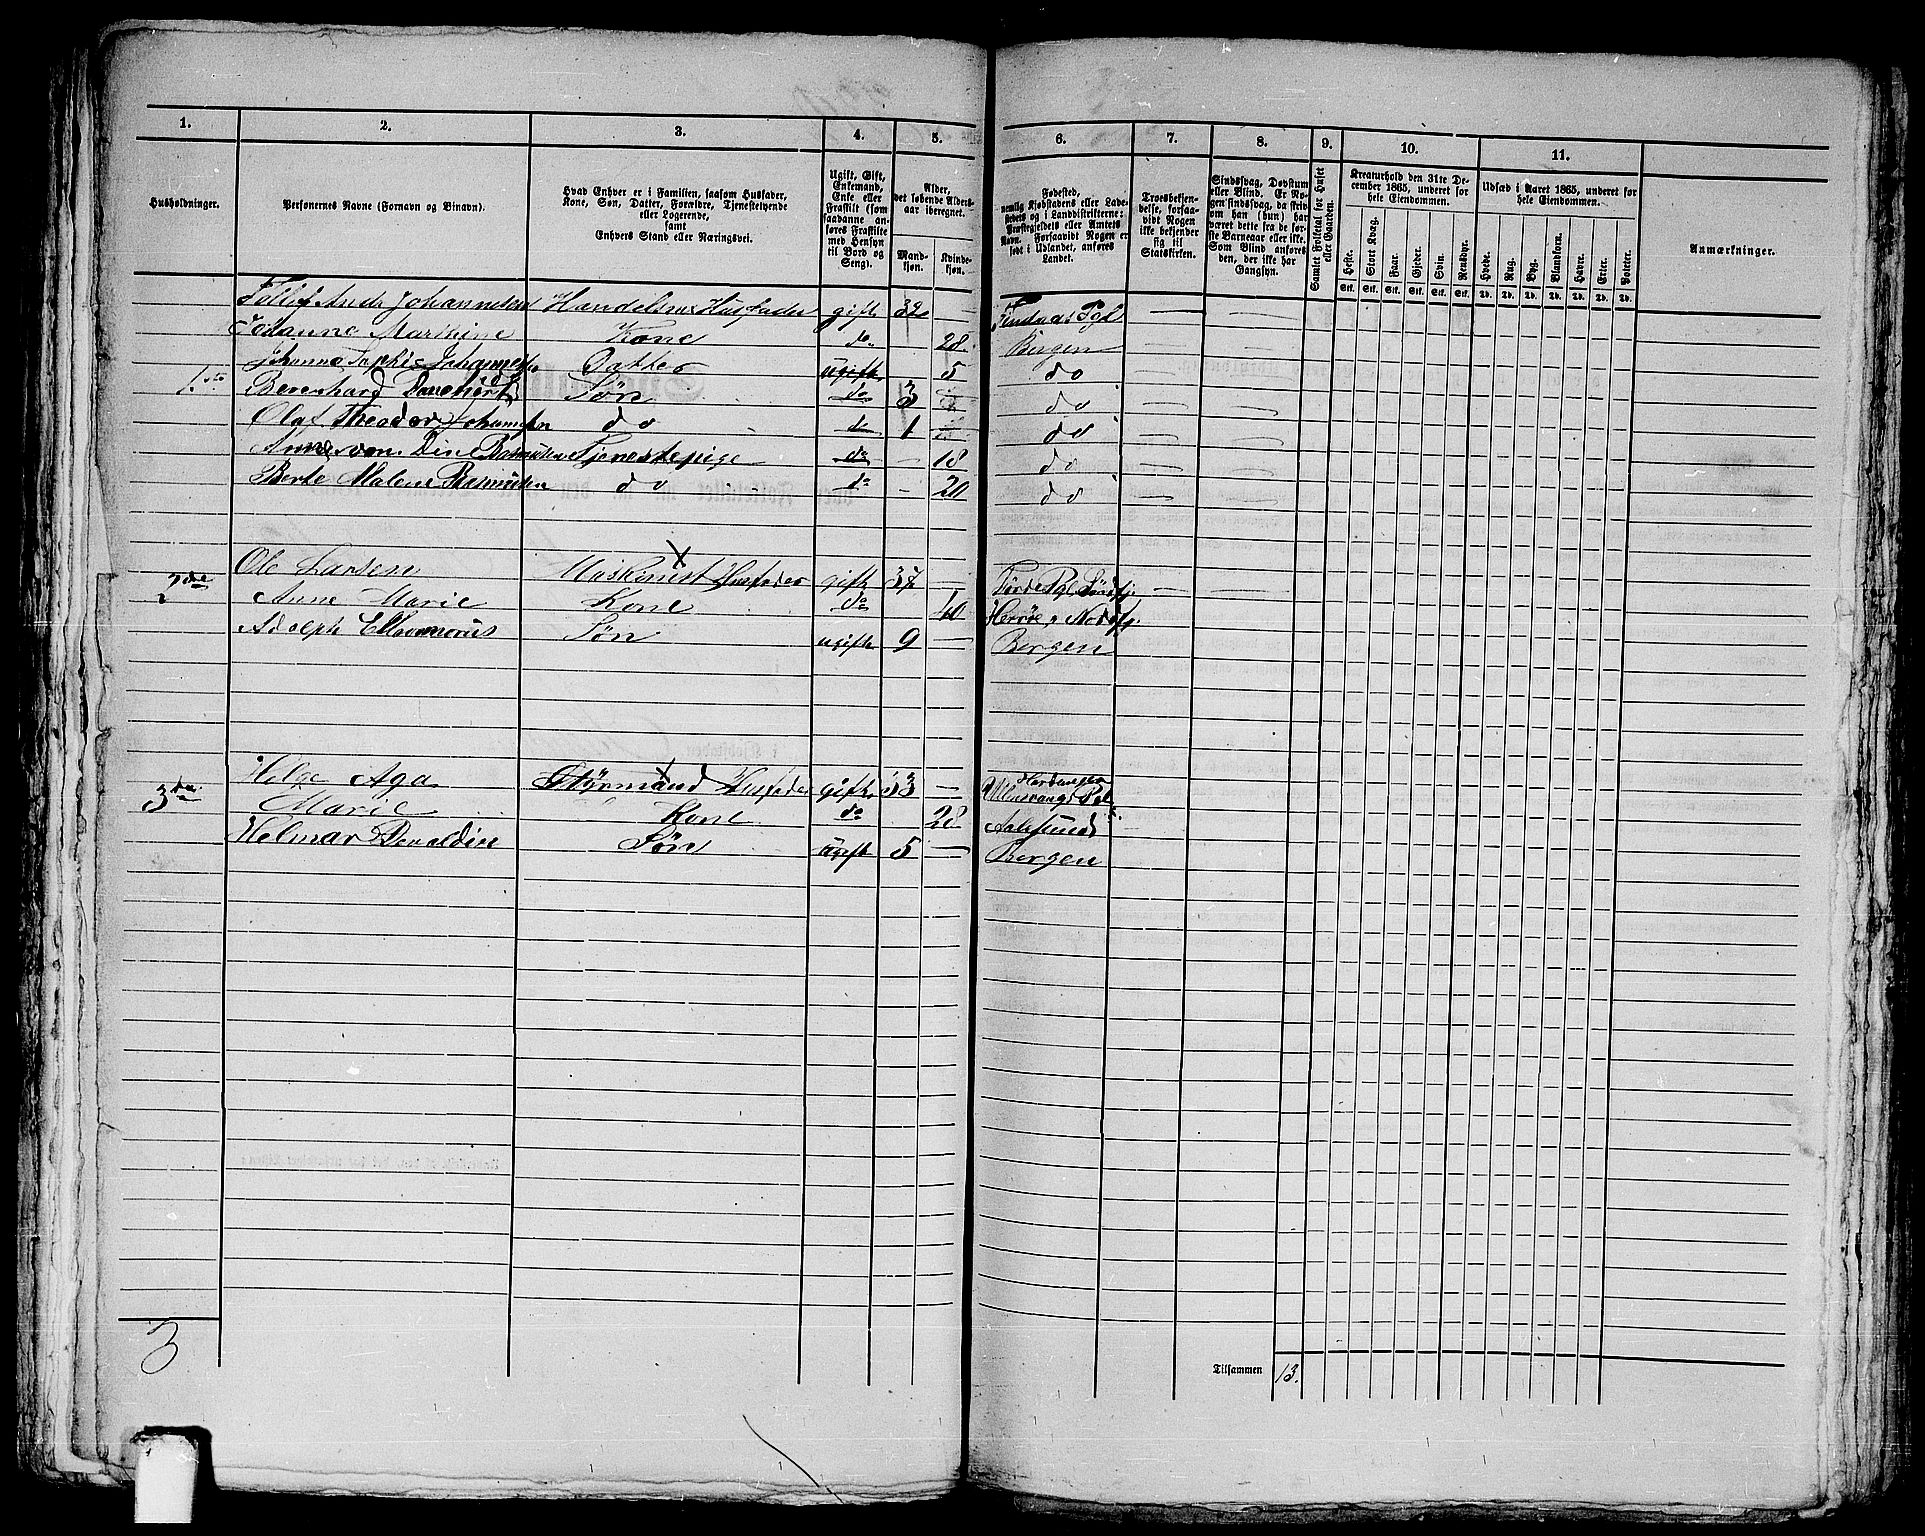 1. 2. 3. 4. 5. 6. 7. 8. 9. 10. 11.
Husholdninger.
Personernes Navne (Fornavn og Binavn).
Hvad Enhver er i Familien, saasom Husfader,
Kone, Søn, Datter, Forældre, Tjenestetyende
eller Logerende,
samt
Enhvers Stand eller Næringsvei.
Ugift, Gift,
Enkemand,
Enke eller
Fraskilt (som
saadanne an-
føres Fraskilte
med Hensyn
til Bord og
Seng).
Alder,
det løbende Alders-
aar iberegnet.
Mand-
kjøn.
Kvinde-
kjøn.
Fødested,
nemlig Kjøbstadens eller Lade-
stedets og i Landdistrikterne:
Præstegjeldets eller Amtets
Navn. Forsaavidt Nogen er
født i Udlandet, anføres
Landet.
Troesbekjen-
delse, forsaa-
vidt Nogen
ikke bekjender
sig til
Statskirken.
Sindssvag, Døvstum
eller Blind. Er No-
gen sindssvag, da skriv
om han (hun) har
været dette fra de før-
ste Barneaar eller ikke.
Som Blind anføres
den, der ikke har
Gangsyn.
Samlet Folketal for Huset
eller Gaarden.
Kreaturhold den 31te De-
cember 1865, underet for
hele Eiendommen.
Heste. Stort Kvæg. Faar. Gjeder. Svin. Rensdyr.
Stk. Stk. Stk. Stk. Stk. Stk.
Udsæd i Aaret 1865, underet for
hele Eiendommen.
Hvede. Rug. Byg. Blandkorn. Havre. Erter. Poteter.
Td. Td. Td. Td. Td. Td. Td.
Anmærkninger.
Johannesen Husfader gift 32 — Pgl
Johanne Marthine Kone do 28 Bergen
Johanne Sophie Johannesen Datter ugift 5 do
1ste Berenhard Søn do 3 do
Olaf Theodor Johannesen do do 1 do
Dine Rasmusen Tjenestepige do — 18 do
Berte Malene Rasmusen do do — 20 do
Ole Larsen Maskinist Husfader gift 37 — Førde Pgl Søndfj
2den Anne Marie Kone do 40 Nordfj.
Adolph Søn ugift 9 — Bergen
Helge Aga Styrmand Husfader gift 33 — Hardanger
3die Marie Kone do 28 Ullensvang Pgl
Helmar Søn ugift 5 — Aalesund
Bergen
3
Tilsammen 13.